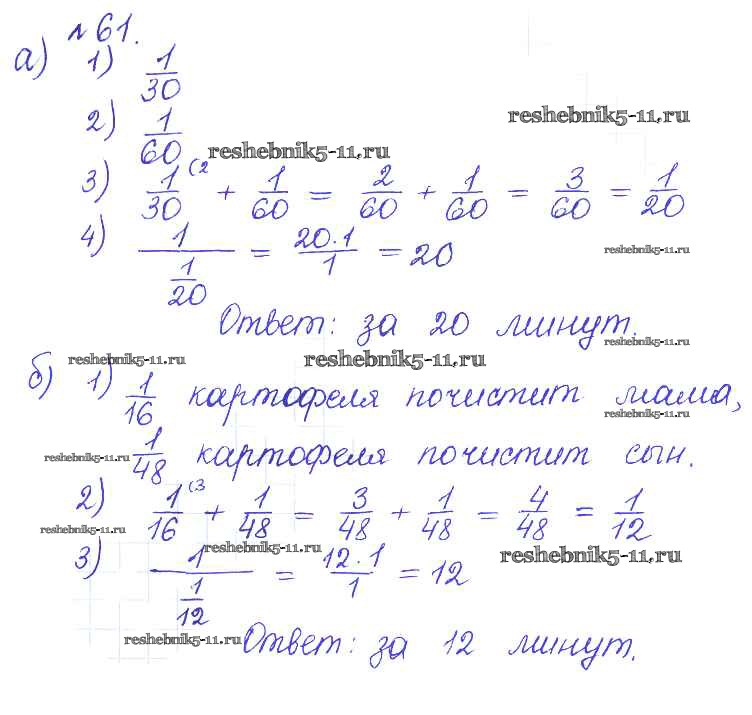 № 61.
а) 1) 1/30
reshebnik5-11.ru
2) 1/60
reshebnik5-11.ru
3) 1/30 (2 + 1/60 = 2/60 + 1/60 = 3/60 = 1/20
4) 1/(1/20) = 20·1/1 = 20
reshebnik5-11.ru
Ответ: за 20 минут.
reshebnik5-11.ru
reshebnik5-11.ru
reshebnik5-11.ru
б) 1) 1/16 картофеля почистит мама,
reshebnik5-11.ru
1/48 картофеля почистит сын.
reshebnik5-11.ru
2) 1/16 (3 + 1/48 = 3/48 + 1/48 = 4/48 = 1/12
reshebnik5-11.ru
reshebnik5-11.ru
reshebnik5-11.ru
3) 1/(1/12) = 12·1/1 = 12
reshebnik5-11.ru
Ответ: за 12 минут.